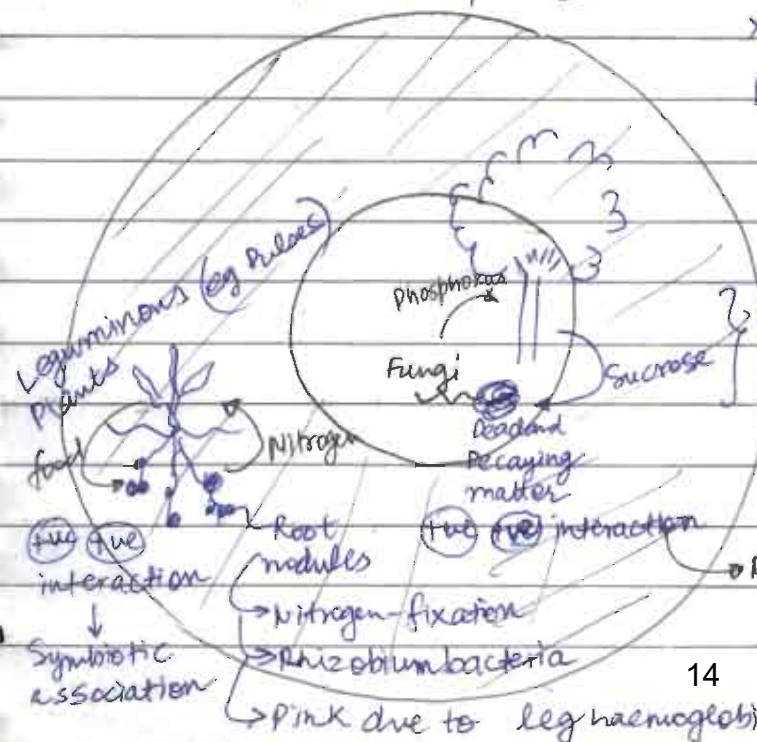 Leguminous (eg Pulses)
Plants
food
Nitrogen
+ve +ve
interaction
Symbiotic
association
Root
nodules
Nitrogen-fixation
Rhizobium bacteria
Pink due to leghaemoglobi
Phosphorus
Fungi
Sucrose
Dead and
Decaying
matter
+ve +ve interaction
14